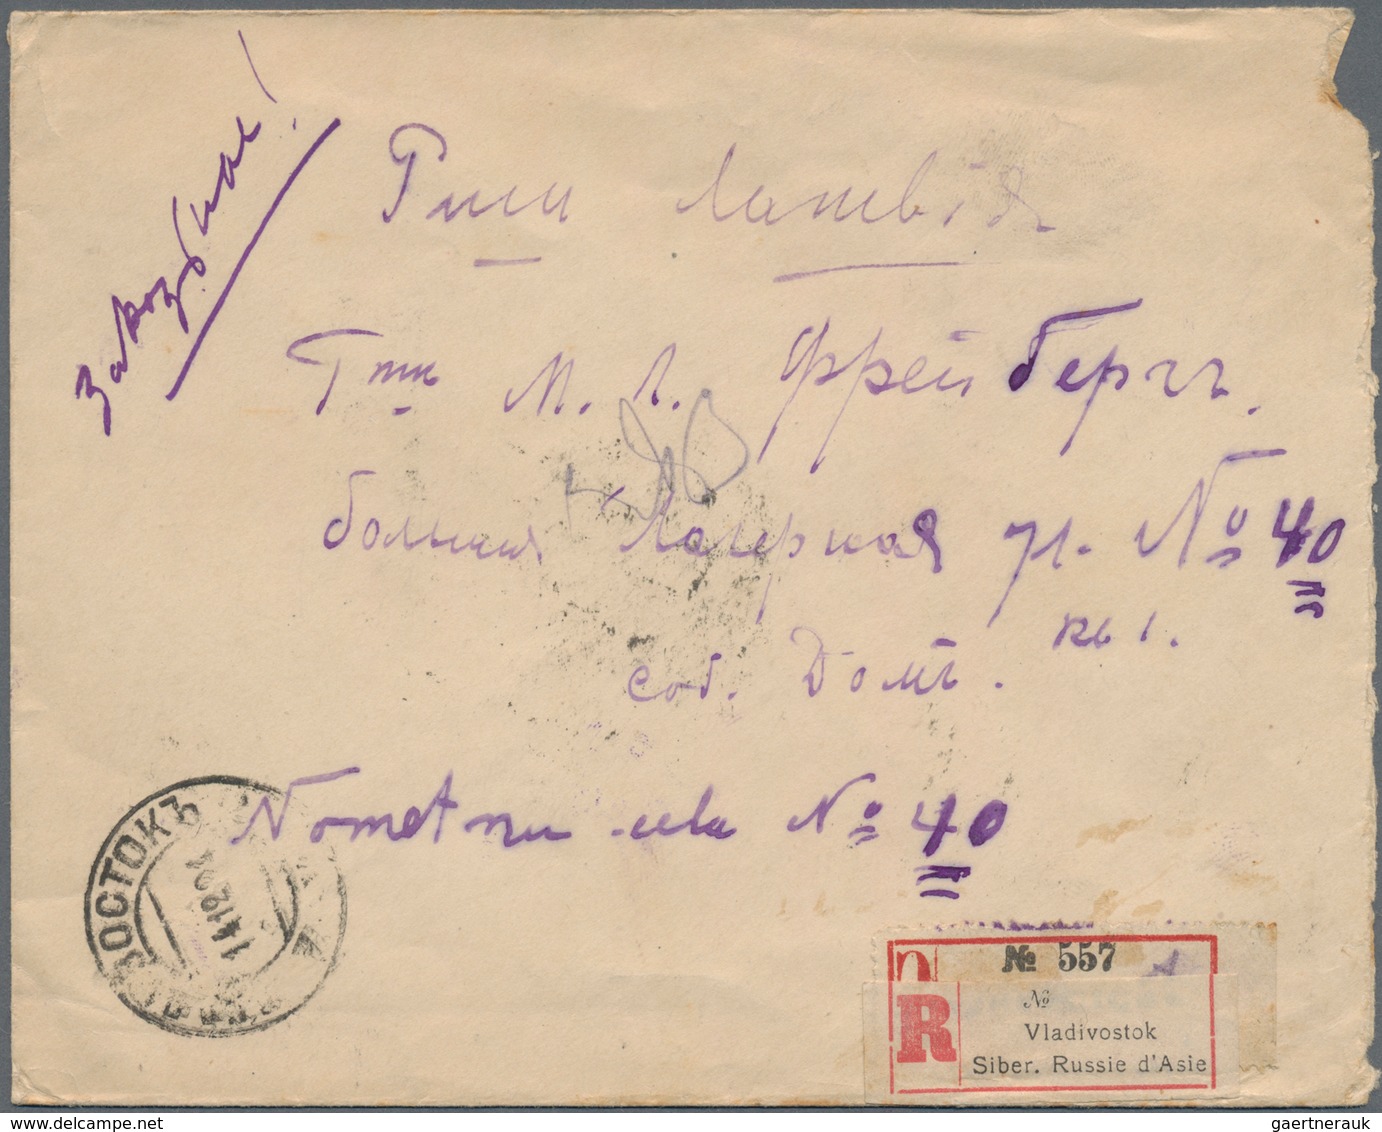 Заказное!
Рига Латвія
Г-жи М. Л. Фрейбергъ.
большая Лагерная ул. № 40
кв 1.
соб. Домъ.
Nometņu iela № 40
ВОСТОКЪ
14 12 24
№ 557
R
№
Vladivostok
Siber. Russie d'Asie
gaertnerauk